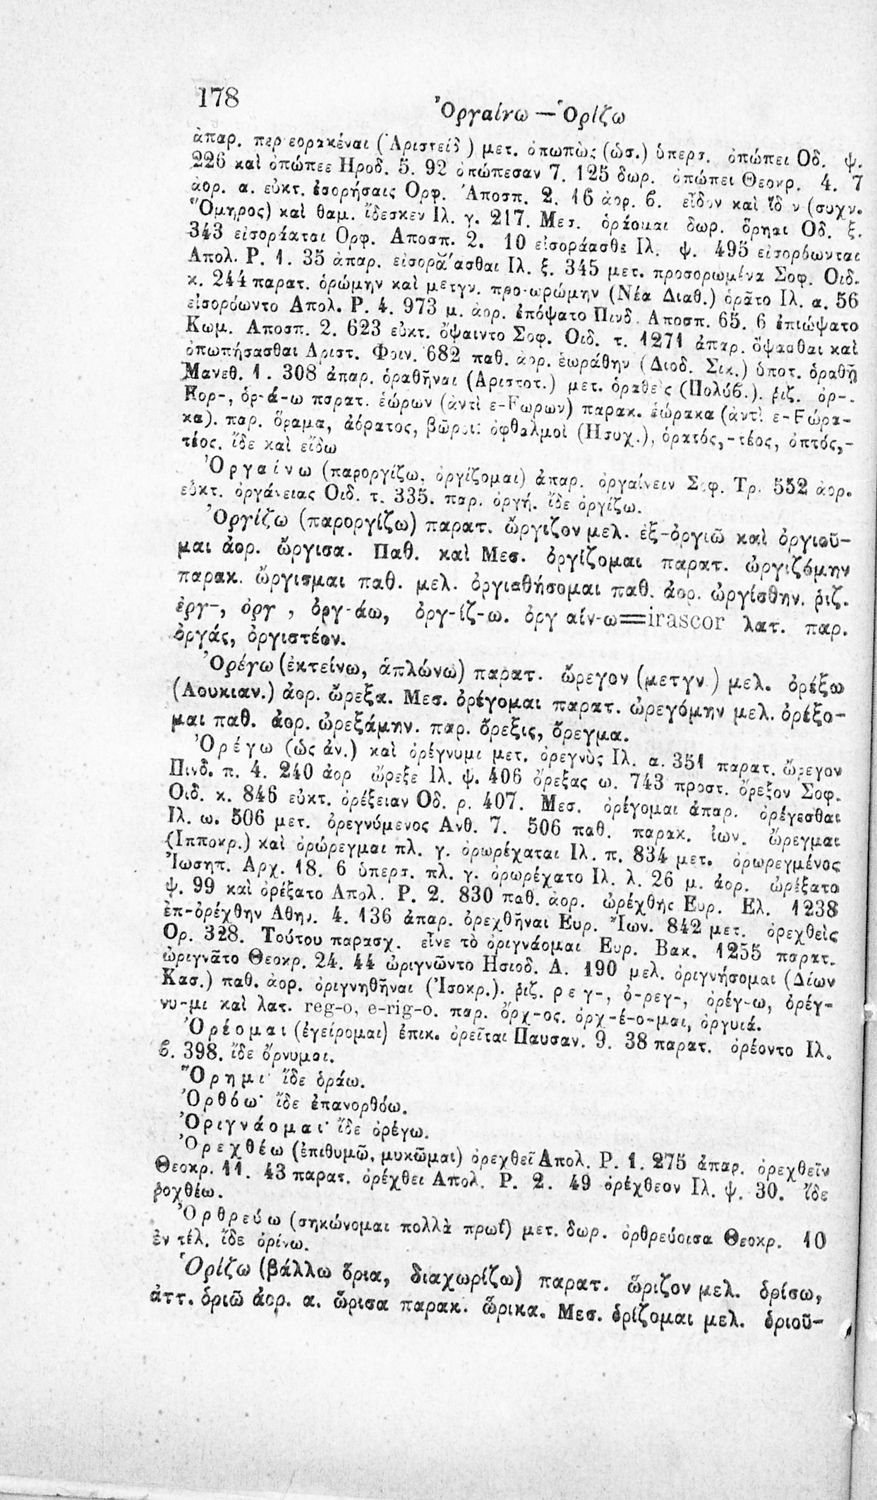 178
Ὀργαίνω — Ὁρίζω
ἀπαρ. περιεορακέναι (Ἀριστείδ) μετ. ὀπωπὼς (ὡσ.) ὑπερσ. ὀπώπει Οδ. ψ.
226 καὶ ὀπώπεε Ηροδ. 5. 92 ὀπώπεσαν 7. 125 δωρ. ὀπώπει Θεοκρ. 4. 7
ἀορ. α. εὐκτ. ἐσορήσαις Ορφ. Ἀποσπ. 2. 16 ἀορ. β. εἶδον καὶ ἴδον (συχν.
Ὅμηρος) καὶ θαμ. ἴδεσκεν Ιλ. γ. 217. Μεσ. ὁράομαι δωρ. ὅρημι Οδ. ξ.
343 εἰσοράαται Ορφ. Αποσπ. 2. 10 εἰσοράασθε Ιλ. ψ. 495 εἰσορόωνται
Απολ. Ρ. 1. 35 ἀπαρ. εἰσοράασθαι Ιλ. ξ. 345 μετ. προσορωμένα Σοφ. Οιδ.
κ. 244 παρατ. ὁρώμην καὶ μετγν. προ-ωρώμην (Νέα Διαθ.) ὁρᾶτο Ιλ. α. 56
εἰσορόωντο Απολ. Ρ. 4. 973 μ. ἀορ. ἐπόψατο Πινδ. Αποσπ. 65. 6 ἐπιώψατο
Κωμ. Αποσπ. 2. 623 εὐκτ. ὄψαιντο Σοφ. Οιδ. τ. 1271 ἀπαρ. ὄψασθαι καὶ
ὀπωπήσασθαι Αριστ. Φοιν. 682 παθ. ἀορ. ἑωράθην (Διοδ. Σικ.) ὑποτ. ὁραθῇ
Μανεθ. 1. 308 ἀπαρ. ὁραθῆναι (Αριστοτ.) μετ. ὁραθεὶς (Πολύβ.). ῥιζ. ὁρ-.
Fορ-, ὁρ-ά-ω παρατ. ἑώρων (ἀντὶ ε-Fωρων) παρακ. ἑώρακα (ἀντὶ ε-Fώρα-
κα). παρ. ὅραμα, ἀόρατος, βῶροι: ὀφθαλμοὶ (Ησυχ.), ὁρατός,-τέος, ὀπτός,-
τέος. ἴδε καὶ εἴδω
Ὀργαίνω (παροργίζω, ὀργίζομαι) ἀπαρ. ὀργαίνειν Σοφ. Τρ. 552 ἀορ.
εὐκτ. ὀργάνειας Οιδ. τ. 335. παρ. ὀργή. ἴδε ὀργίζω.
Ὀργίζω (παροργίζω) παρατ. ὤργιζον μελ. ἐξ-ὀργιῶ καὶ ὀργιοῦ-
μαι ἀορ. ὤργισα. Παθ. καὶ Μεσ. ὀργίζομαι παρατ. ὠργιζόμην
παρακ. ὤργισμαι παθ. μελ. ὀργισθήσομαι παθ. ἀορ. ὠργίσθην. ῥιζ.
ἐργ-, ὀργ , ὀργ-άω, ὀργ-ίζ-ω. ὀργ αίν-ω=irascor λατ. παρ.
ὀργάς, ὀργιστέον.
Ὀρέγω (ἐκτείνω, ἁπλώνω) παρατ. ὤρεγον (μετγν ) μελ. ὀρέξω
(Λουκιαν.) ἀορ. ὤρεξα. Μεσ. ὀρέγομαι παρατ. ὠρεγόμην μελ. ὀρέξο-
μαι παθ. ἀορ. ὠρεξάμην. παρ. ὄρεξις, ὄρεγμα.
Ὀρέγω (ὡς ἀν.) καὶ ὀρέγνυμι μετ. ὀρεγνὺς Ιλ. α. 351 παρατ. ὤρεγον
Πινδ. π. 4. 240 ἀορ ὤρεξε Ιλ. ψ. 406 ὄρεξας ω. 743 προστ. ὄρεξον Σοφ.
Οιδ. κ. 846 εὐκτ. ὀρέξειαν Οδ. ρ. 407. Μεσ. ὀρέγομαι ἀπαρ. ὀρέγεσθαι
Ιλ. ω. 506 μετ. ὀρεγνύμενος Ανθ. 7. 506 παθ. παρακ. ἰων. ὤρεγμαι
(Ιπποκρ.) καὶ ὀρώρεγμαι πλ. γ. ὀρωρέχαται Ιλ. π. 834 μετ. ὀρωρεγμένος
Ἰωσηπ. Αρχ. 18. 6 ὑπερσ. πλ. γ. ὀρωρέχατο Ιλ. λ. 26 μ. ἀορ. ὠρέξατο
ψ. 99 καὶ ὀρέξατο Απολ. Ρ. 2. 830 παθ. ἀορ. ὠρέχθης Ευρ. Ελ. 1238
ἐπ-ὀρέχθην Αθην. 4. 136 ἀπαρ. ὀρεχθῆναι Ευρ. Ἴων. 842 μετ. ὀρεχθεὶς
Ορ. 328. Τούτου παρασχ. εἶνε τὸ ὀριγνάομαι Ευρ. Βακ. 1255 παρατ.
ὠριγνᾶτο Θεοκρ. 24. 44 ὠριγνῶντο Ησιοδ. Α. 190 μελ. ὀριγνήσομαι (Δίων
Κασ.) παθ. ἀορ. ὀριγνηθῆναι (Ἰσοκρ.). ῥιζ. ρεγ-, ὀ-ρεγ-, ὀρέγ-ω, ὀρέγ-
νυ-μι καὶ λατ. reg-o, e-rig-o. παρ. ὄρχ-ος. ὀρχ-έ-ο-μαι, ὀργυιά.
Ὀρέομαι (ἐγείρομαι) ἐπικ. ὀρεῖται Παυσαν. 9. 38 παρατ. ὀρέοντο Ιλ.
β. 398. ἴδε ὄρνυμαι.
Ὅρημι· ἴδε ὁράω.
Ὀρθόω· ἴδε ἐπανορθόω.
Ὀριγνάομαι· ἴδε ὀρέγω.
Ὀρεχθέω (ἐπιθυμῶ, μυκῶμαι) ὀρεχθεῖ Απολ. Ρ. 1. 275 ἀπαρ. ὀρεχθεῖν
Θεοκρ. 11. 43 παρατ. ὀρέχθει Απολ. Ρ. 2. 49 ὀρέχθεον Ιλ. ψ. 30. ἴδε
ῥοχθέω.
Ὀρθρεύω (σηκώνομαι πολλὰ πρωΐ) μετ. δωρ. ὀρθρεύοισα Θεοκρ. 10
ἐν τέλ. ἴδε ὀρίνω.
Ὁρίζω (βάλλω ὅρια, διαχωρίζω) παρατ. ὥριζον μελ. ὁρίσω,
ἀττ. ὁριῶ ἀορ. α. ὥρισα παρακ. ὥρικα. Μεσ. ὁρίζομαι μελ. ὁριοῦ-